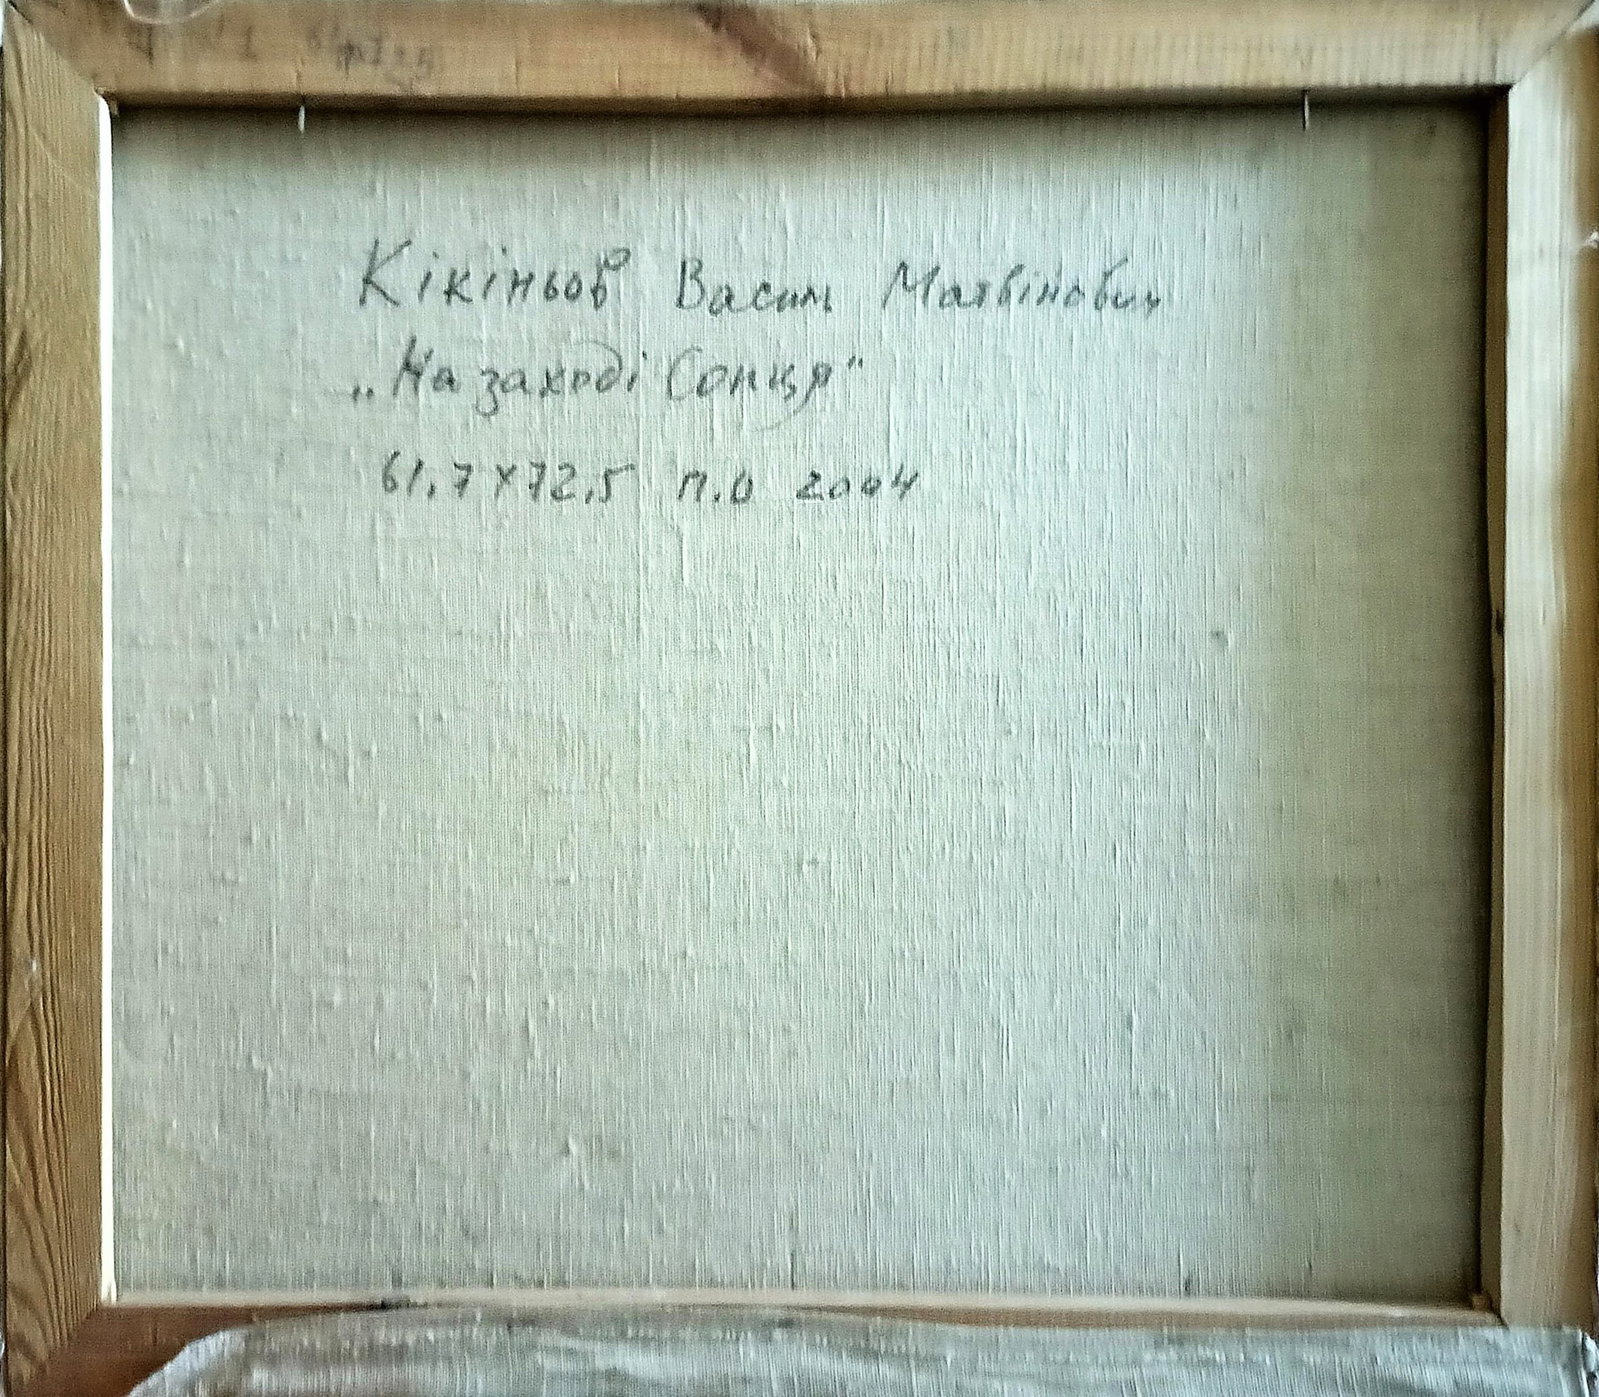 Кікіньов Василь Матвійович
„На заході Сонця"
61,7x72,5 п.о 2004